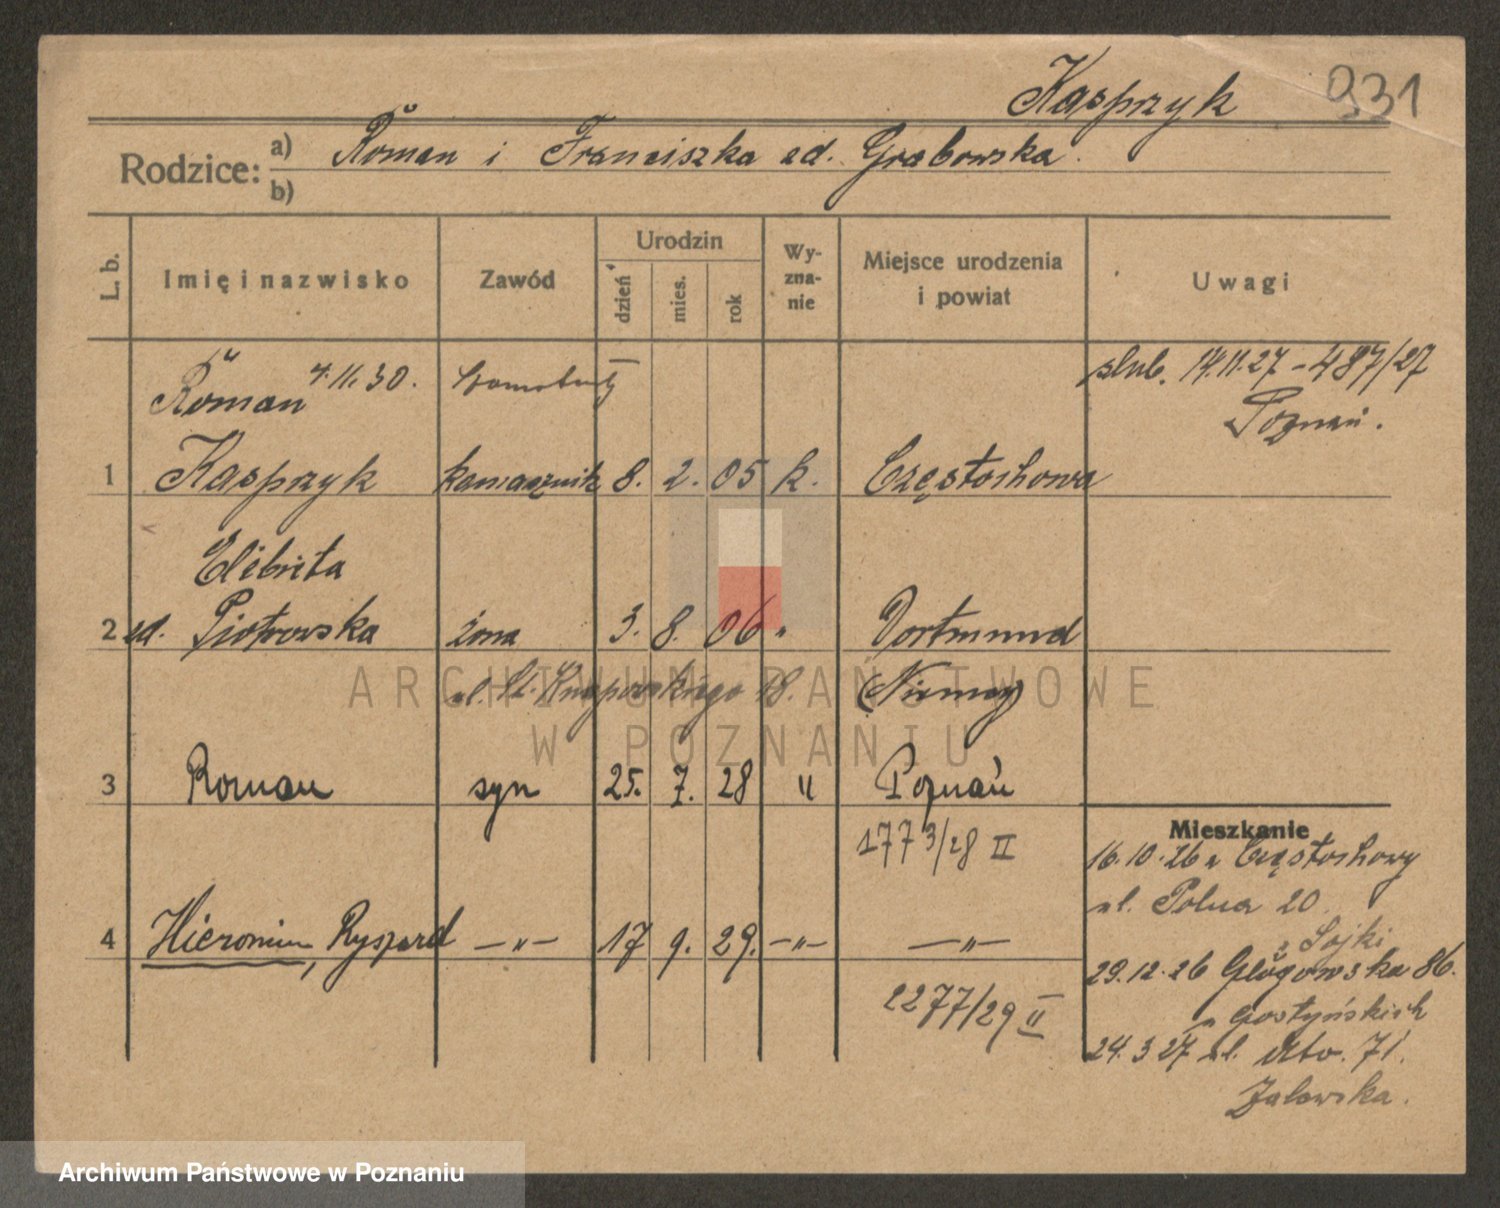 Kasprzyk 931
Rodzice: a) Roman i Franciszka zd. Grabowska.
b)
L. b. Imię i nazwisko Zawód Urodzin dzień mies. rok Wyznanie Miejsce urodzenia i powiat Uwagi
Roman 4.11.30. ślub. 14.11.27 - 487/27
Poznań.
1 Kasprzyk kamasznik 8. 2. 05 k. Częstochowa
Elżbieta
2 zd. Piotrowska żona 3. 8. 06 " Dortmund
ul. 18. (Niemcy)
3 Roman syn 25. 7. 28 " Poznań
1773/28 II
Mieszkanie
16.10.26 z Częstochowy
ul. Polna 20
4 Hieronim, Ryszard —"— 17 9. 29. —"— —"—
u Sojki
29.12.26 Głogowska 86.
2277/29 II
u Gostyńskich
24.3 27 ul. 71.
Zalewska.
ARCHIWUM PAŃSTWOWE
W POZNANIU
Archiwum Państwowe w Poznaniu